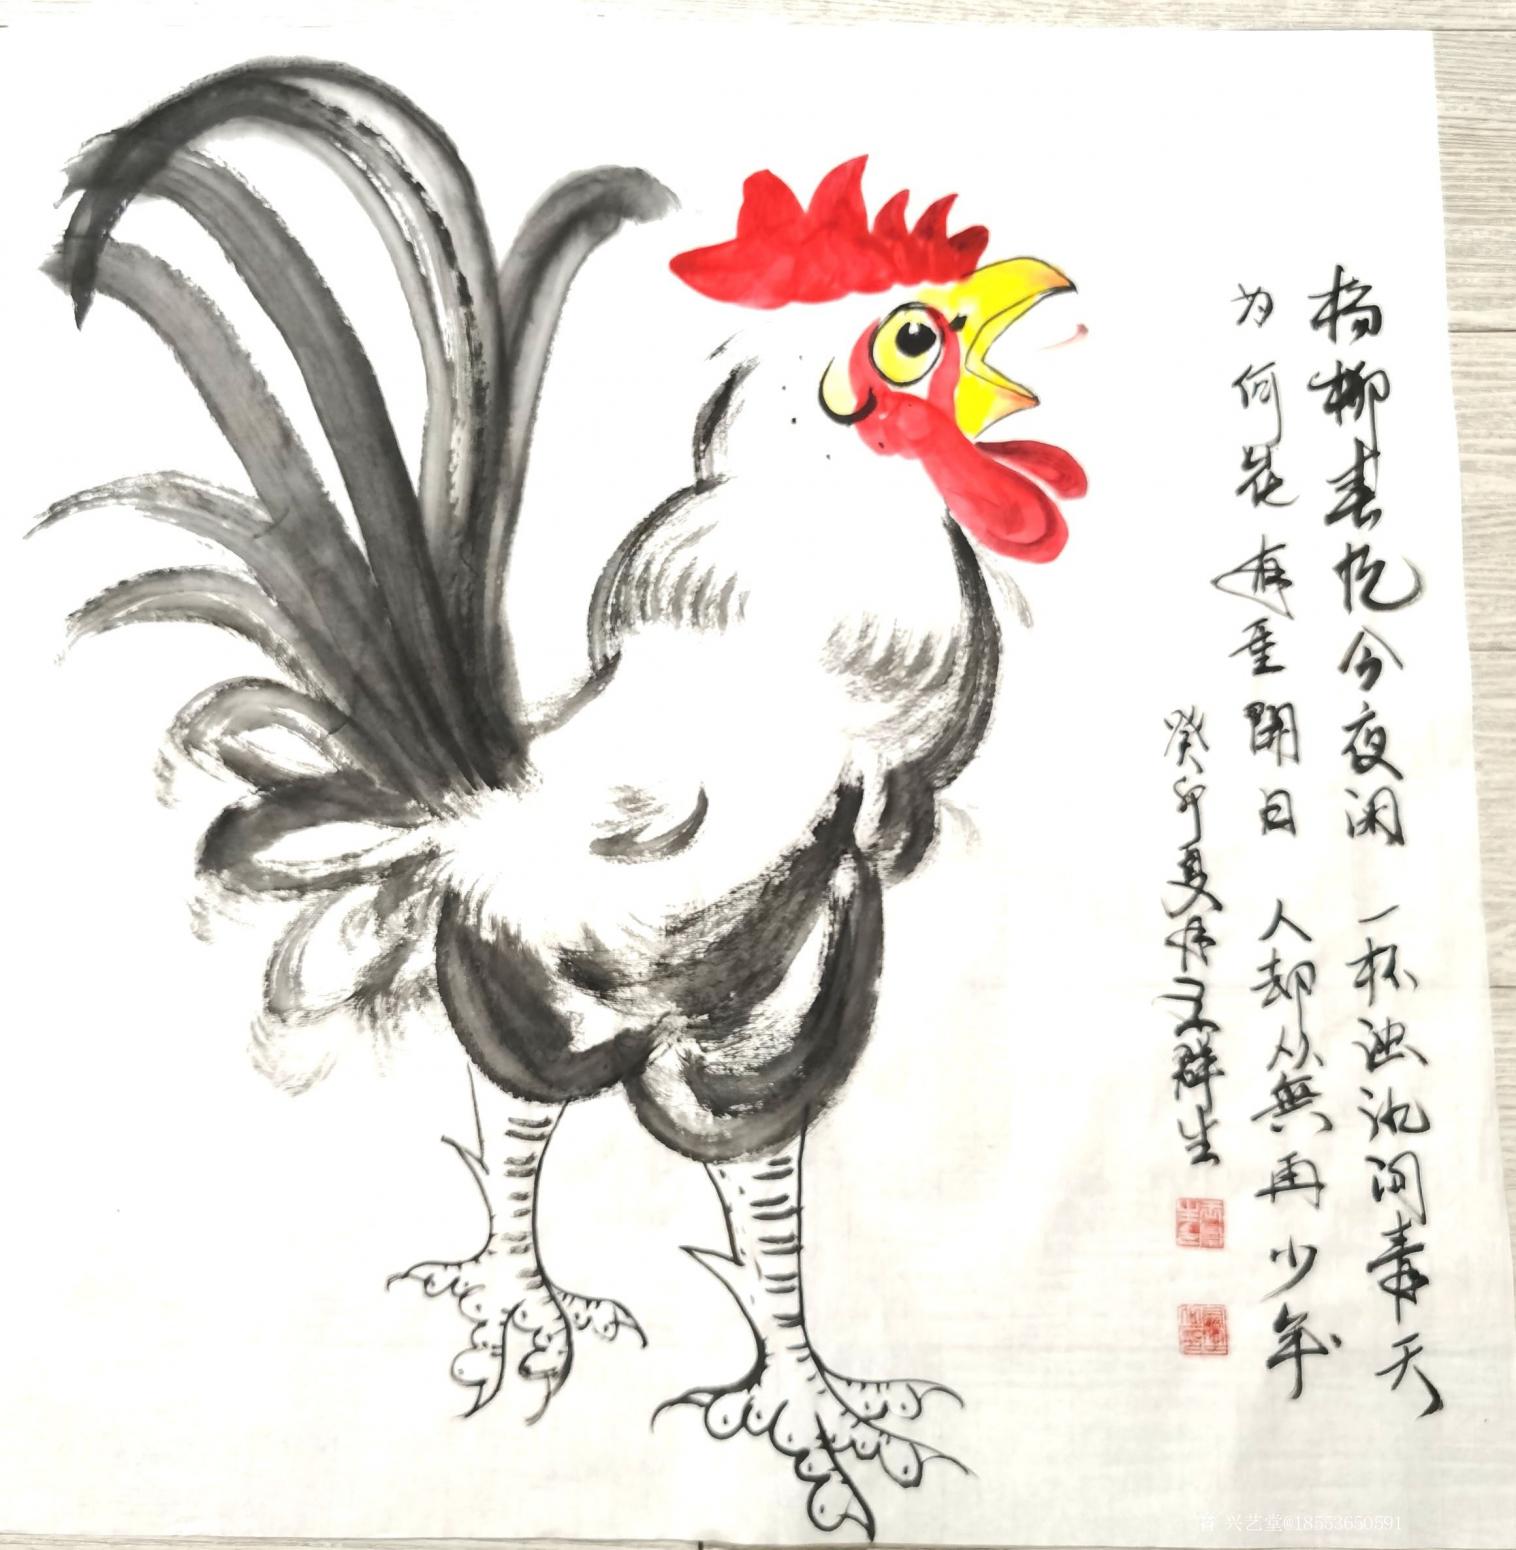 杨柳春忆今夜闲 一杯浊酒问青天
为何花有重開日 人却从無再少年
癸卯夏群生
兴艺堂@18553650591